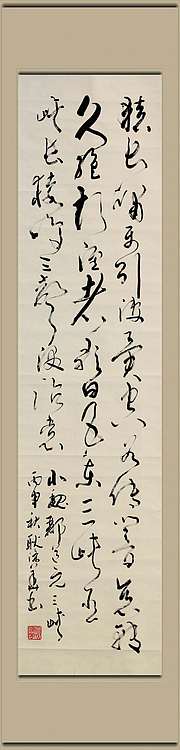 猿长啸属引凄异空谷传响哀转
久绝故渔者歌曰巴东三峡巫
峡长猿鸣三声泪沾裳
北魏郦道元三峡
丙申秋耿书